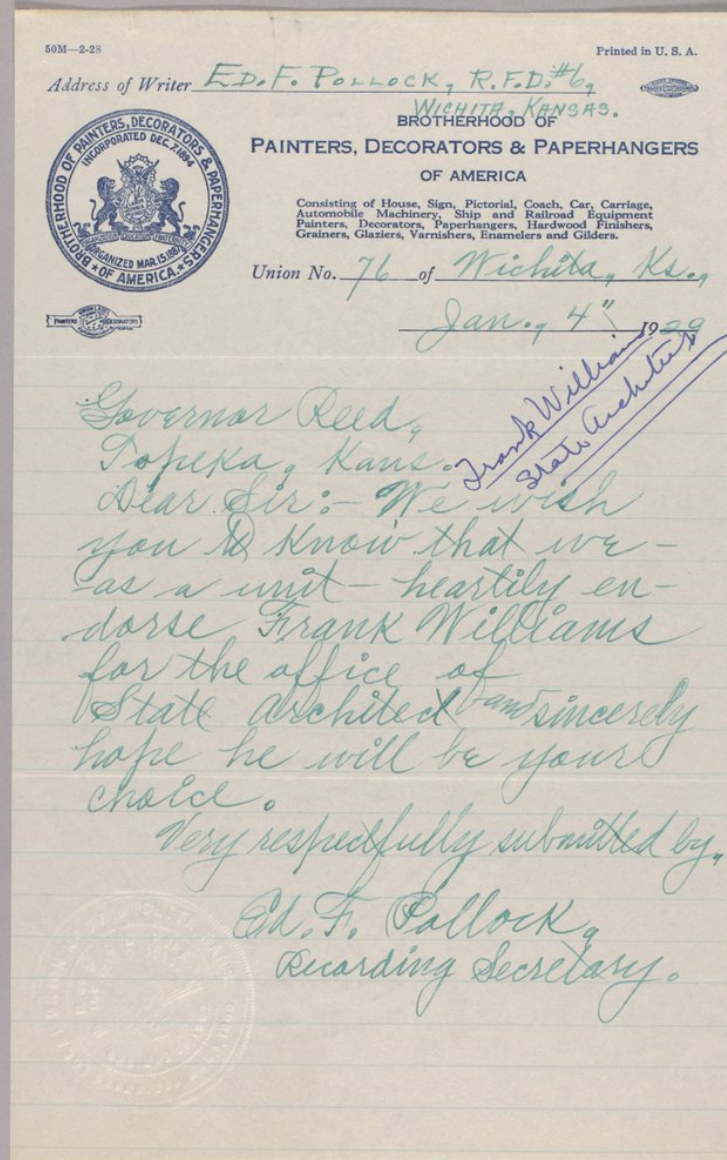 50M—2-28
Printed in U. S. A.
Address of Writer ED. F. POLLOCK, R.F.D. #6,
WICHITA, KANSAS.
BROTHERHOOD OF
PAINTERS, DECORATORS & PAPERHANGERS
OF AMERICA
BROTHERHOOD OF PAINTERS, DECORATORS & PAPERHANGERS
OF AMERICA
INCORPORATED DEC. 7, 1894
ORGANIZED MAR. 15, 1887
Consisting of House, Sign, Pictorial, Coach, Car, Carriage,
Automobile Machinery, Ship and Railroad Equipment
Painters, Decorators, Paperhangers, Hardwood Finishers,
Grainers, Glaziers, Varnishers, Enamelers and Gilders.
Union No. 76 of Wichita, Ks.,
Jan., 4" 1929
PAINTERS DECORATORS
Frank Williams
State Architect
Governor Reed,
Topeka, Kans.
Dear Sir:- We wish
you to know that we -
-as a unit- heartily en-
dorse Frank Williams
for the office of
State Architect and sincerely
hope he will be your
choice.
Very respectfully submitted by,
Ed. F. Pollock,
Recording Secretary.